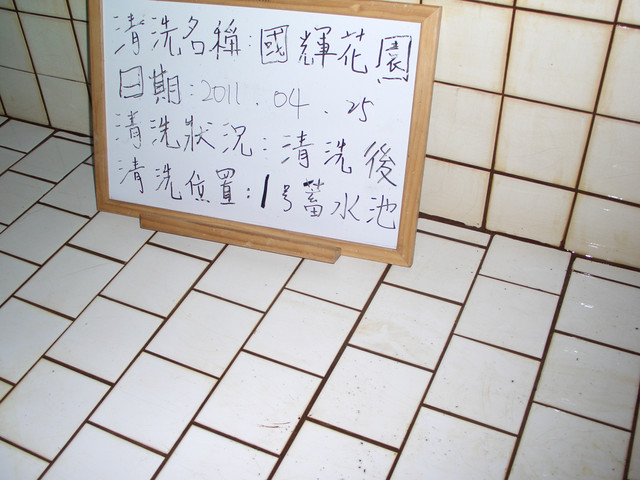 清洗名稱:國輝花園
日期:2011.04.25
清洗狀況:清洗後
清洗位置:1号蓄水池